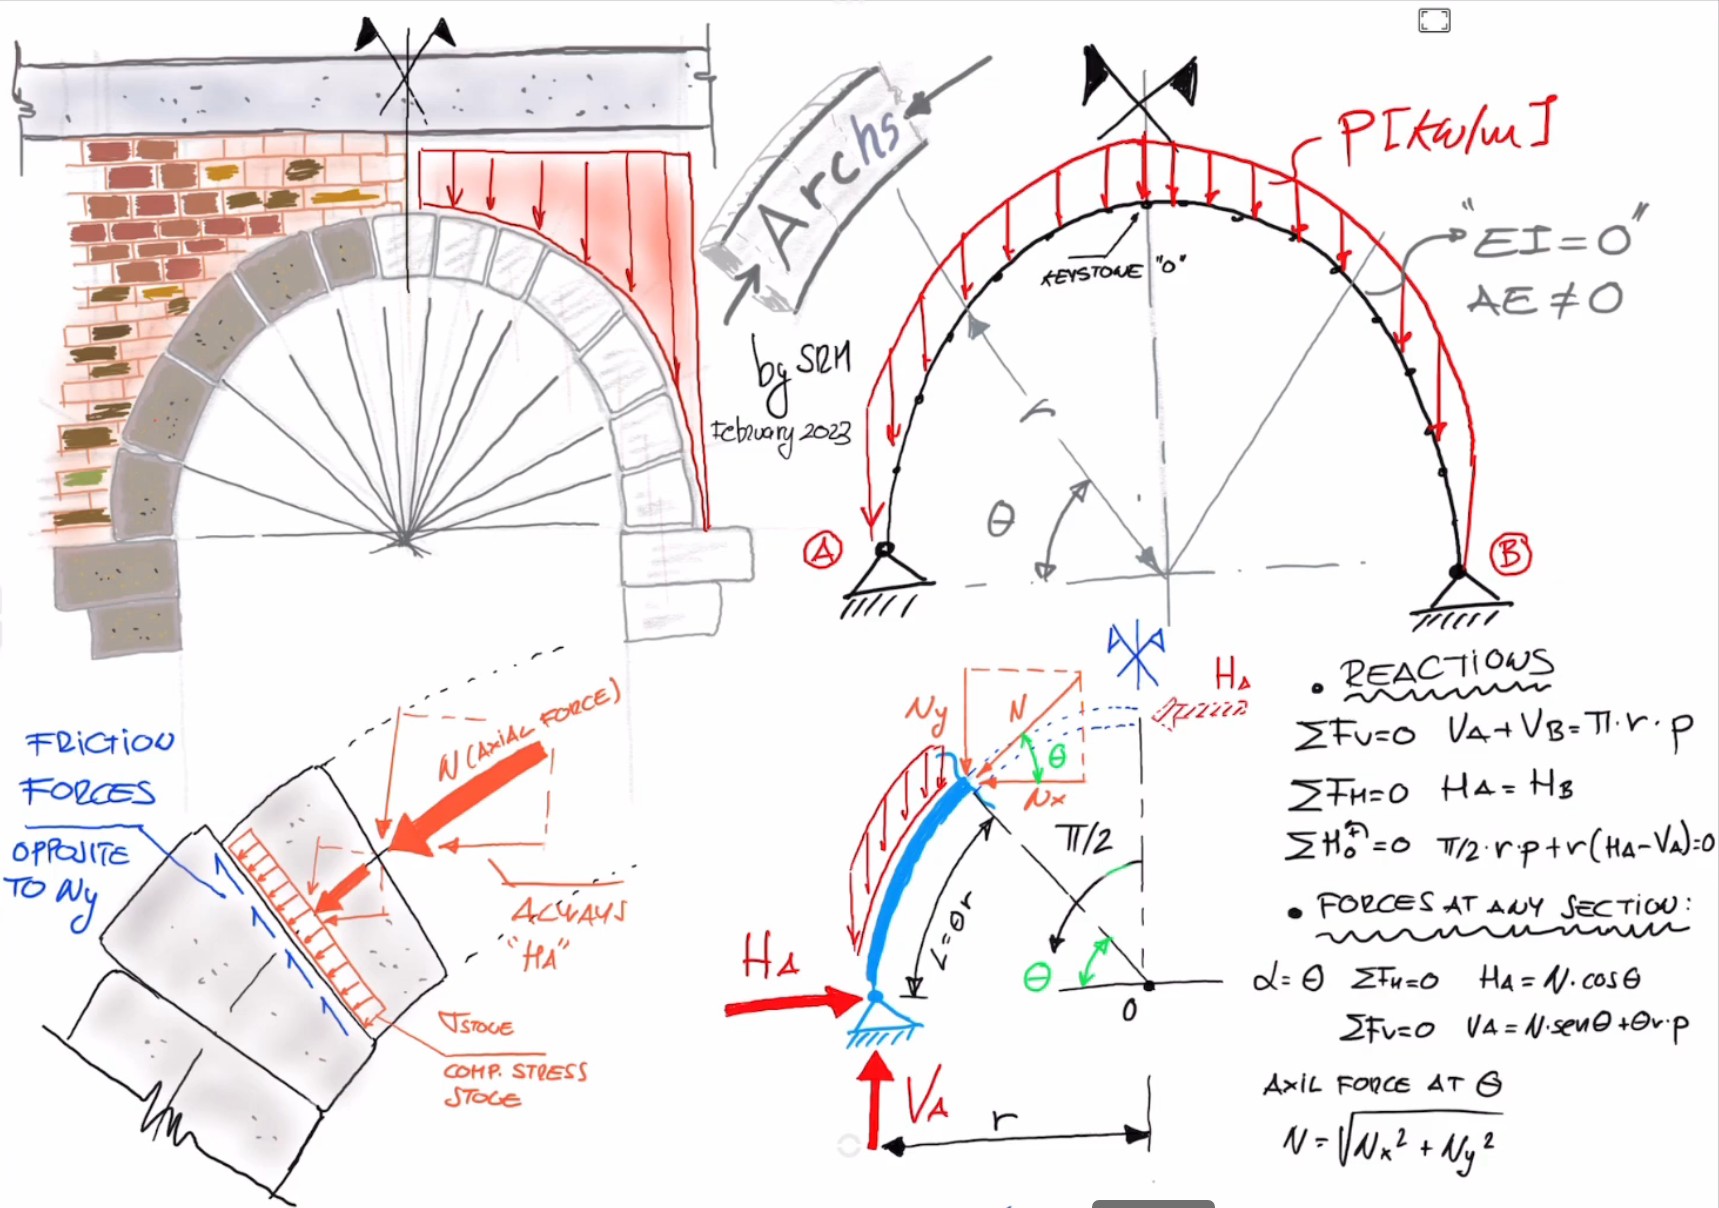 Archs
by SRM
February 2023
P[KN/m]
"EI=0"
AE≠0
KEYSTONE "O"
r
θ
A
B
FRICTION
FORCES
OPPOSITE
TO Ny
N (AXIAL FORCE)
ALWAYS
"HA"
σSTONE
COMP. STRESS
STONE
Ny
N
θ
Nx
HA
π/2
L=θr
θ
O
HA
VA
r
• REACTIONS
ΣFV=0 VA+VB=π·r·p
ΣFH=0 HA=HB
ΣMO(+)=0 π/2·r·p+r(HA-VA)=0
• FORCES AT ANY SECTION:
α=θ ΣFH=0 HA=N·cosθ
ΣFV=0 VA=N·senθ+θr·p
AXIL FORCE AT θ
N=√Nx²+Ny²